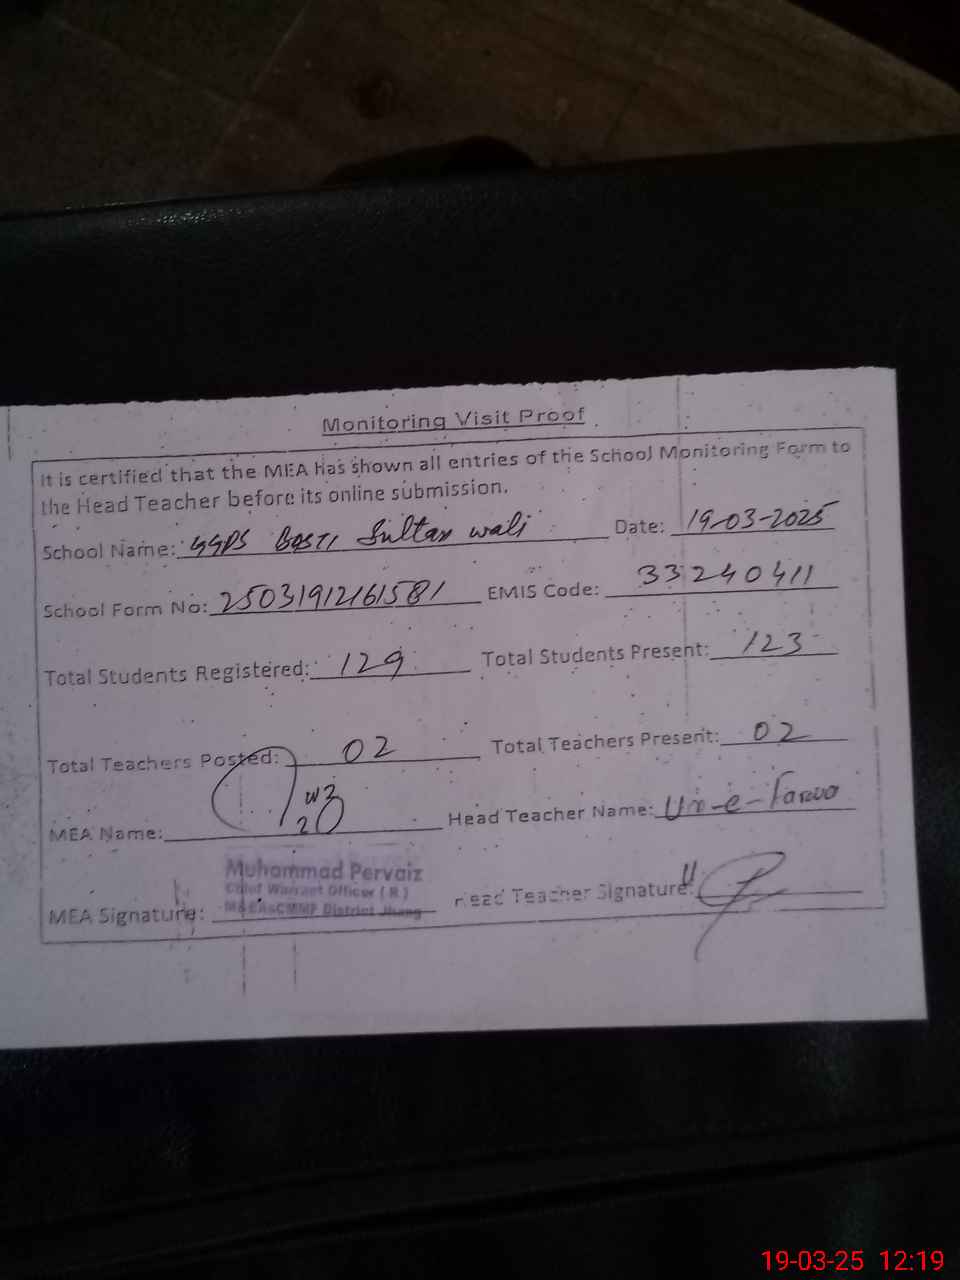 Monitoring Visit Proof
It is certified that the MEA has shown all entries of the School Monitoring Form to
the Head Teacher before its online submission.
School Name: GGPS Basti Sultan wali Date: 19-03-2025
School Form No: 25031912161581 EMIS Code: 33240411
Total Students Registered: 129 Total Students Present: 123
Total Teachers Posted: 02 Total Teachers Present: 02
MEA Name: Head Teacher Name: Um-e-Farwa
Muhammad Pervaiz
Chief Warrant Officer (R)
MEA Signature: M&EA CMMF District Jhang Head Teacher Signature:
19-03-25 12:19